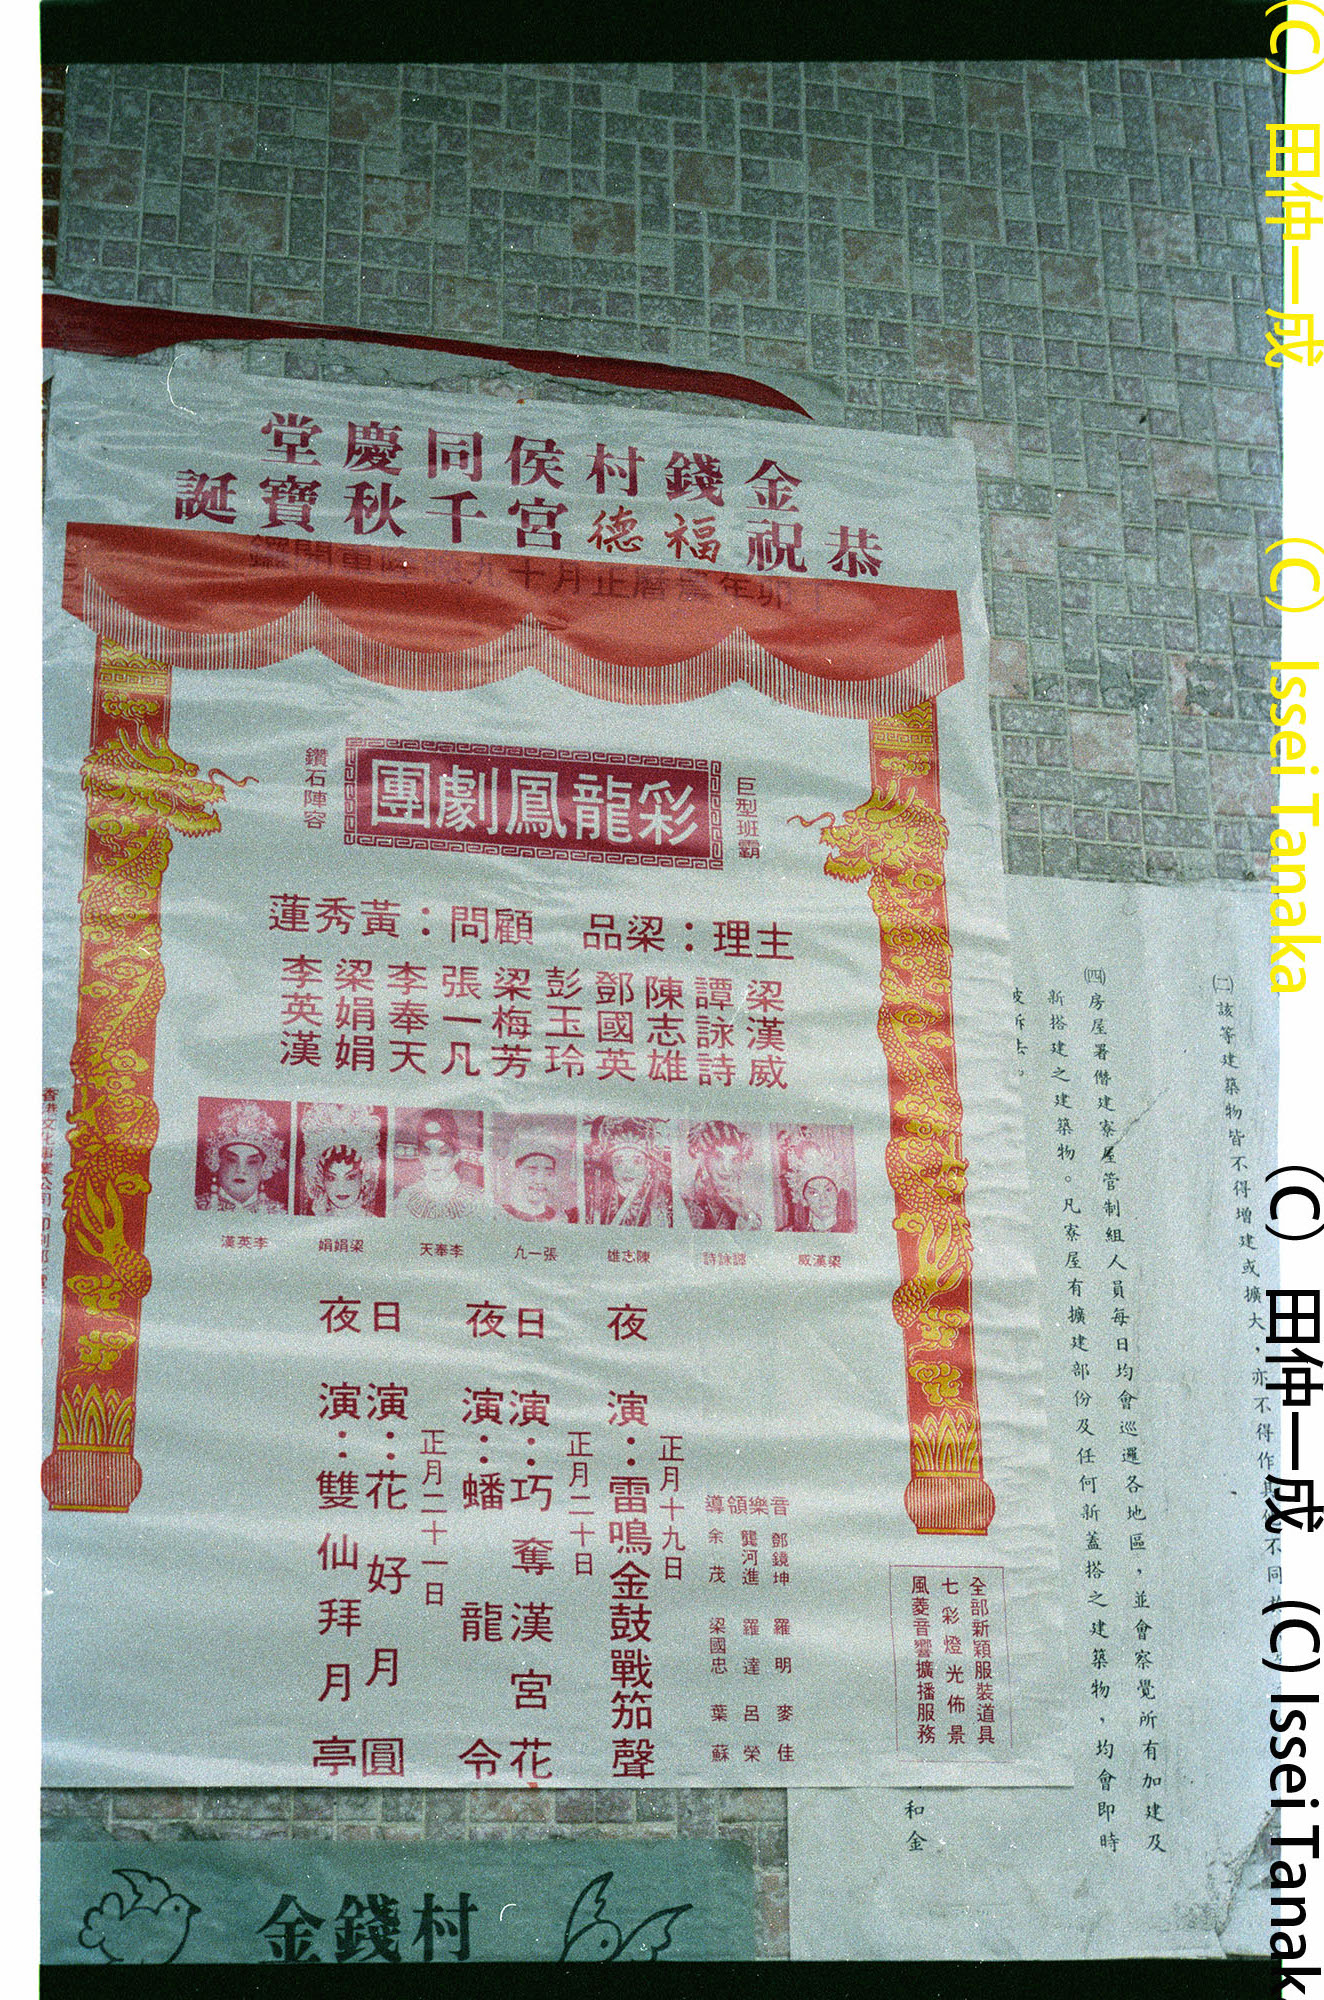 金錢村侯同慶堂
恭祝福德宮千秋寶誕
卯年農曆正月十九晚隆重開鑼
巨型班霸
彩龍鳳劇團
鑽石陣容
主理：梁品　顧問：黃秀蓮
梁漢威
譚詠詩
陳志雄
鄧國英
彭玉玲
梁梅芳
張一凡
李奉天
梁娟娟
李英漢
梁漢威
譚詠詩
陳志雄
張一凡
李奉天
梁娟娟
李英漢
正月十九日
夜演：雷鳴金鼓戰笳聲
正月二十日
日演：巧奪漢宮花
夜演：蟠龍令
正月二十一日
日演：花好月圓
夜演：雙仙拜月亭
音樂領導
鄧鏡坤　羅明　麥佳
龔河進　羅達　呂榮
余茂　梁國忠　葉蘇
全部新穎服裝道具
七彩燈光佈景
風菱音響擴播服務
香港文化事業公司
㈡該等建築物皆不得增建或擴大，亦不得作其他不同
㈣房屋署僭建寮屋管制組人員每日均會巡邏各地區，並會察覺所有加建及
新搭建之建築物。凡寮屋有擴建部份及任何新蓋搭之建築物，均會即時
被拆去。
和金
金錢村
(C) 田仲一成　(C) Issei Tanaka
(C) 田仲一成　(C) Issei Tanak